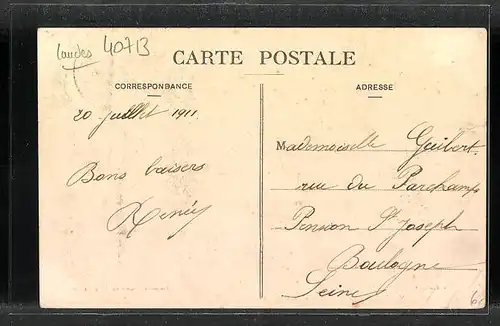 Landes 40713
CARTE POSTALE
CORRESPONDANCE
ADRESSE
20 juillet 1911.
Bons baisers
Mademoiselle Guibert
rue du Parchamp
Pension St Joseph
Boulogne
Seine